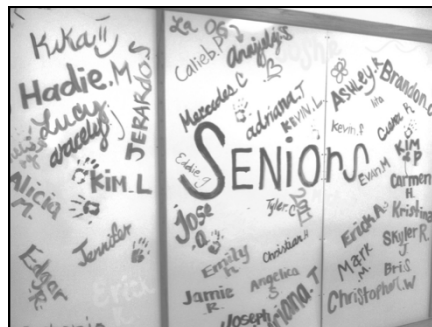 KiKa
Hadie.M
Lucy
aracely
JERARDO.S
Alicia
M.
KiM.L
Jennifer
Edgar
R.
Erick
La OG
Calieb.P
Anajely.S
Mercedes.C
adriana.T
KEVIN.L
Eddie.g
SENiors
Jose
Q.
Tyler.C
Emily
R.
Christian
Jamie
R.
Angelica
S
Joseph
Adriana.T
AShLEY.R
Brandon.C
Kevin.P
Cuena R.
KiM
P
Evan.M
Carmen
H.
Kristina
Erick A.
Skyler R.
J
Mark
.M.
Bri S
Christopher.W